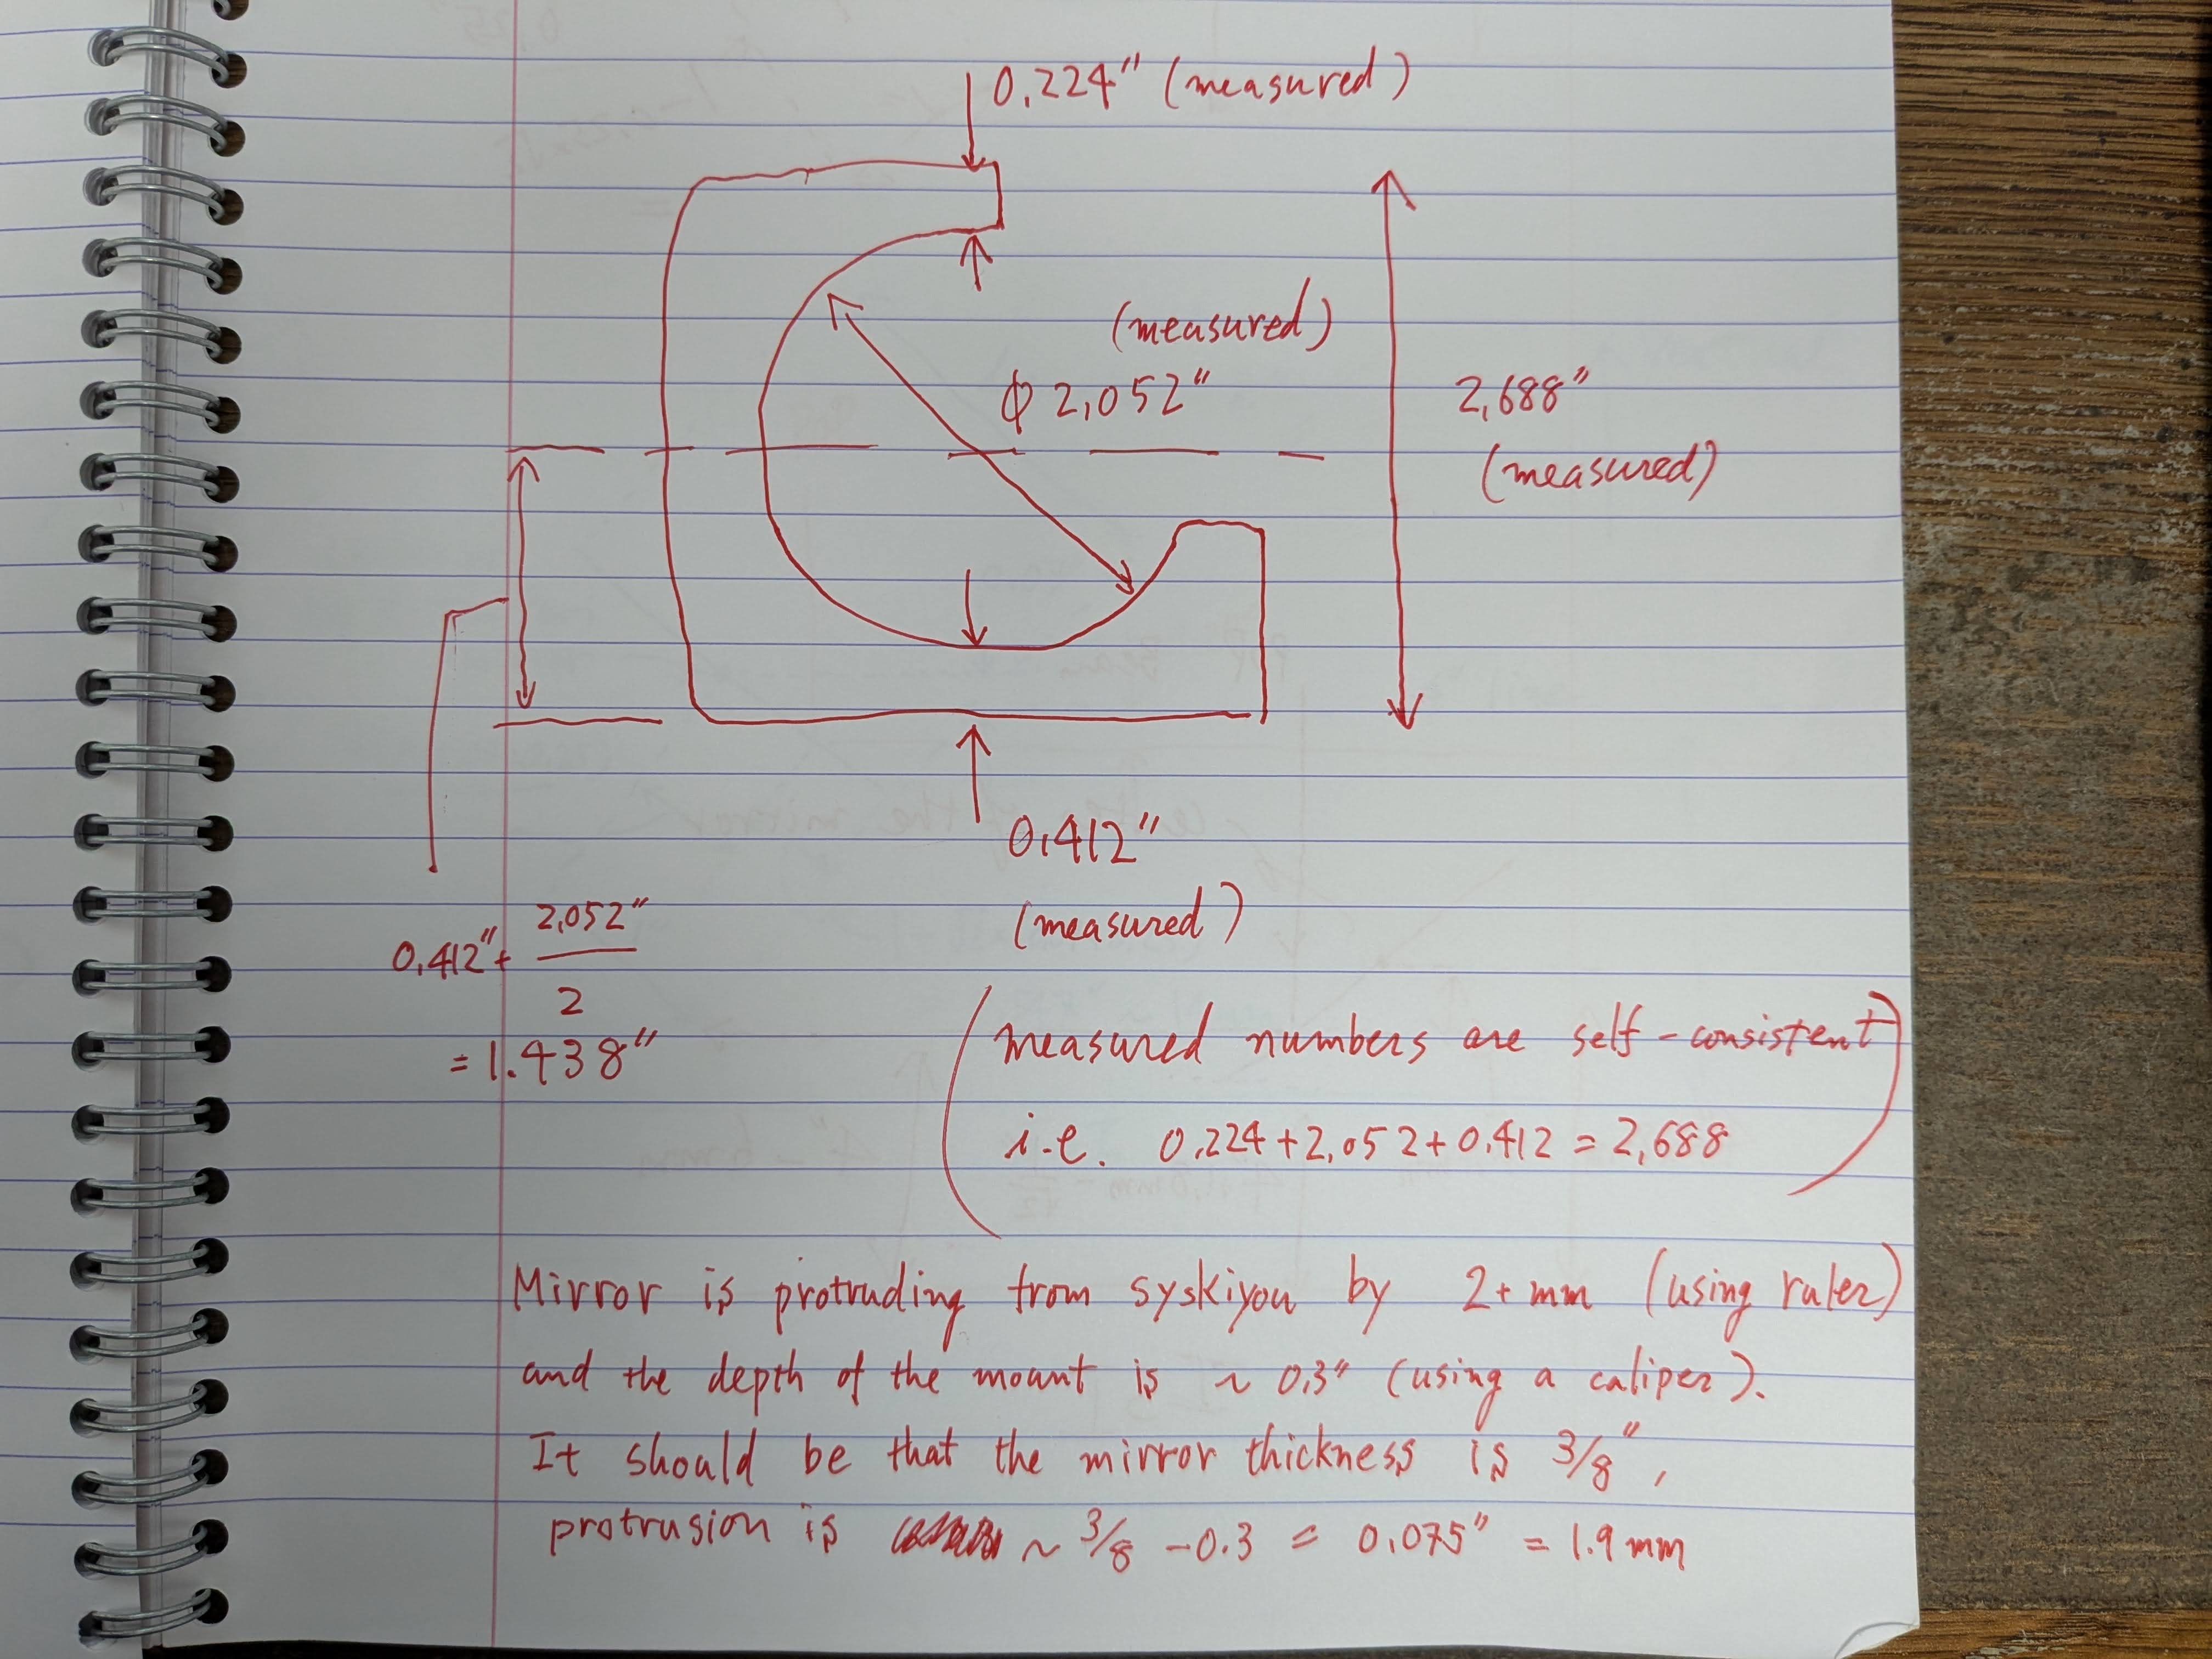 0.224" (measured)
(measured)
φ 2.052"
2.688"
(measured)
0.412"
(measured)
0.412" + 2.052"
2
= 1.438"
(measured numbers are self-consistent
i.e. 0.224+2.052+0.412 = 2.688)
Mirror is protruding from syskiyou by 2+ mm (using ruler)
and the depth of the mount is ~ 0.3" (using a caliper).
It should be that the mirror thickness is 3/8",
protrusion is ~ 3/8 - 0.3 = 0.075" = 1.9 mm